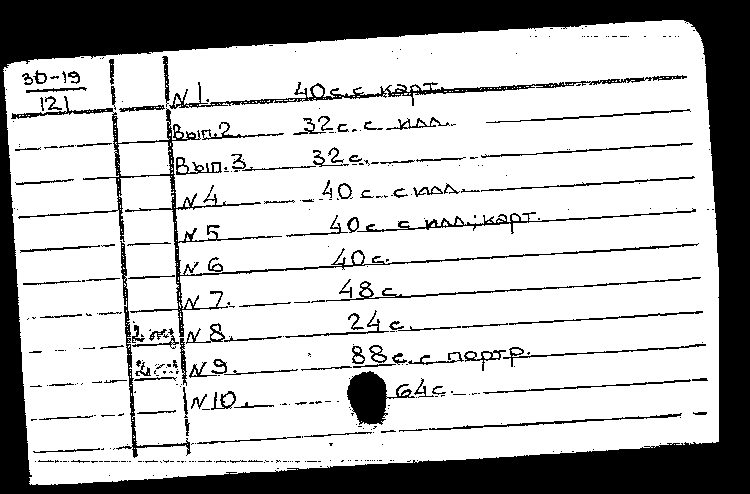 30-19
121
N 1. 40 с. с карт.
Вып. 2. 32 с. с илл.
Вып. 3. 32 с.
N 4. 40 с. с илл.
N 5 40 с с илл.; карт.
N 6 40 с.
N 7. 48 с.
N 8. 24 с.
N 9. 88 с. с портр.
N 10. 64 с.